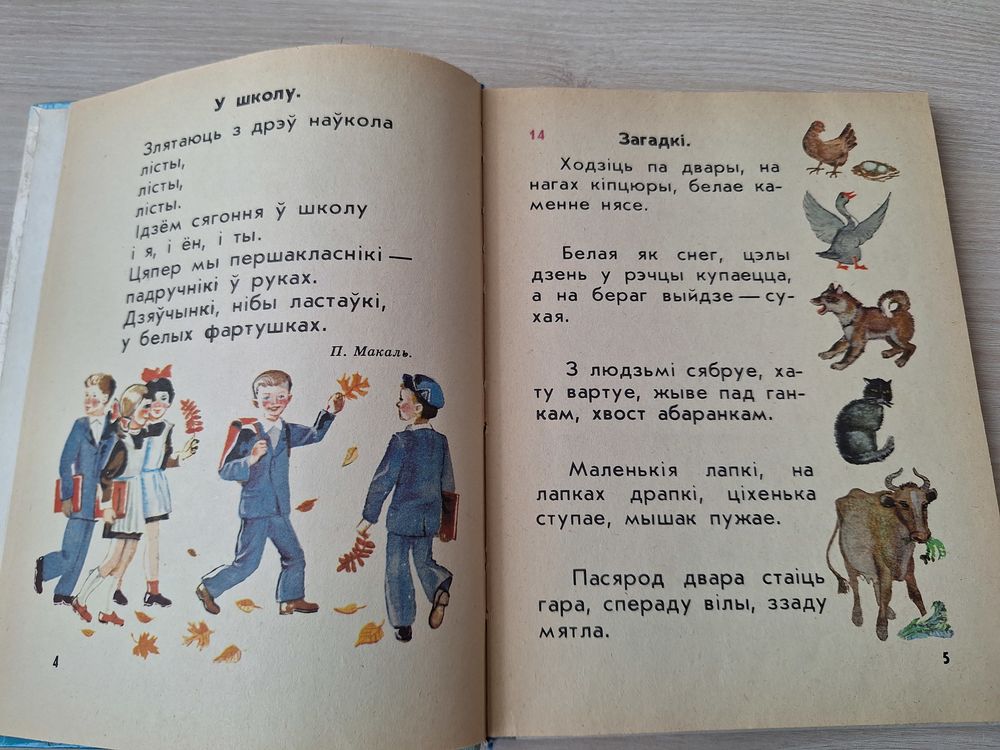 У школу.
Злятаюць з дрэў наўкола
лісты,
лісты,
лісты.
Ідзём сягоння ў школу
і я, і ён, і ты.
Цяпер мы першакласнікі —
падручнікі ў руках.
Дзяўчынкі, нібы ластаўкі,
у белых фартушках.
П. Макаль.
4
14
Загадкі.
Ходзіць па двары, на
нагах кіпцюры, белае ка-
менне нясе.
Белая як снег, цэлы
дзень у рэчцы купаецца,
а на бераг выйдзе — су-
хая.
З людзьмі сябруе, ха-
ту вартуе, жыве пад ган-
кам, хвост абаранкам.
Маленькія лапкі, на
лапках драпкі, ціхенька
ступае, мышак пужае.
Пасярод двара стаіць
гара, спераду вілы, ззаду
мятла.
5